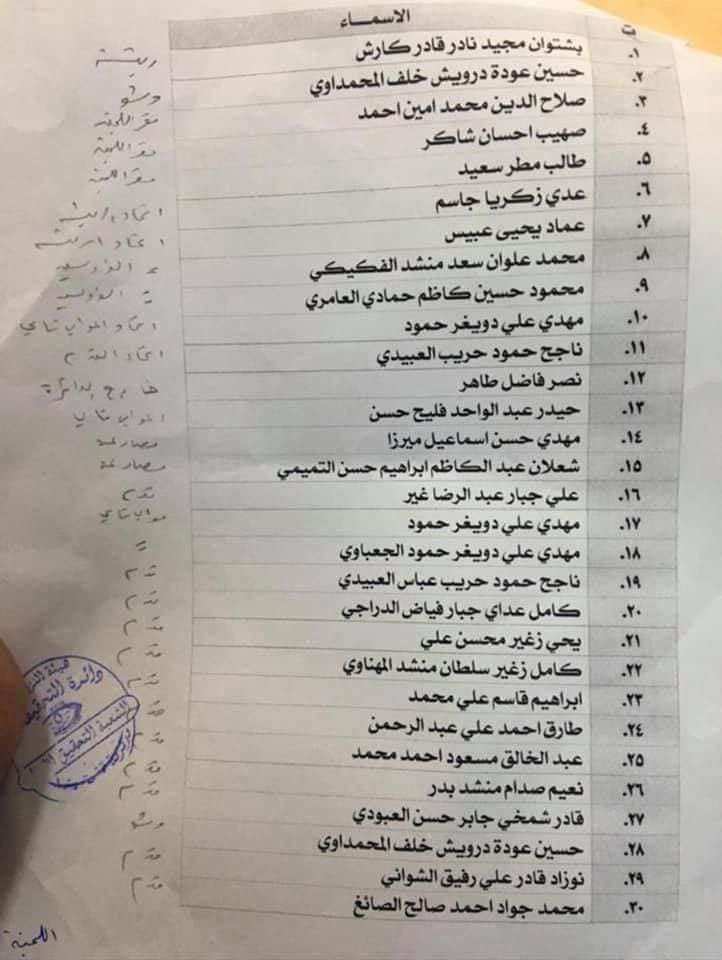 ت الاسماء
١. بشتوان مجيد نادر قادر كارش ريشة
٢. حسين عودة درويش خلف المحمداوي وشو
٣. صلاح الدين محمد امين احمد مقر اللجنة
٤. صهيب احسان شاكر مقر اللجنة
٥. طالب مطر سعيد مقر اللجنة
٦. عدي زكريا جاسم اتحاد الريشة
٧. عماد يحيى عبيس اتحاد الريشة
٨. محمد علوان سعد منشد الفكيكي الفروسية
٩. محمود حسين كاظم حمادي العامري الفروسية
١٠. مهدي علي دويغر حمود اتحاد المواي تاي
١١. ناجح حمود حريب العبيدي اتحاد القدم
١٢. نصر فاضل طاهر خارج الدائرة
١٣. حيدر عبد الواحد فليح حسن المواي تاي
١٤. مهدي حسن اسماعيل ميرزا مصارعة
١٥. شعلان عبد الكاظم ابراهيم حسن التميمي مصارعة
١٦. علي جبار عبد الرضا غير قدم
١٧. مهدي علي دويغر حمود مواي تاي
١٨. مهدي علي دويغر حمود الجعباوي
١٩. ناجح حمود حريب عباس العبيدي قدم
٢٠. كامل عداي جبار فياض الدراجي قدم
٢١. يحي زغير محسن علي قدم
٢٢. كامل زغير سلطان منشد المهناوي قدم
٢٣. ابراهيم قاسم علي محمد قدم
٢٤. طارق احمد علي عبد الرحمن
٢٥. عبد الخالق مسعود احمد محمد قدم
٢٦. نعيم صدام منشد بدر قدم
٢٧. قادر شمخي جابر حسن العبودي قدم
٢٨. حسين عودة درويش خلف المحمداوي وشو
٢٩. نوزاد قادر علي رفيق الشواني قدم
٣٠. محمد جواد احمد صالح الصائغ قدم
هيئة
دائرة
الشعبة
اللجنة